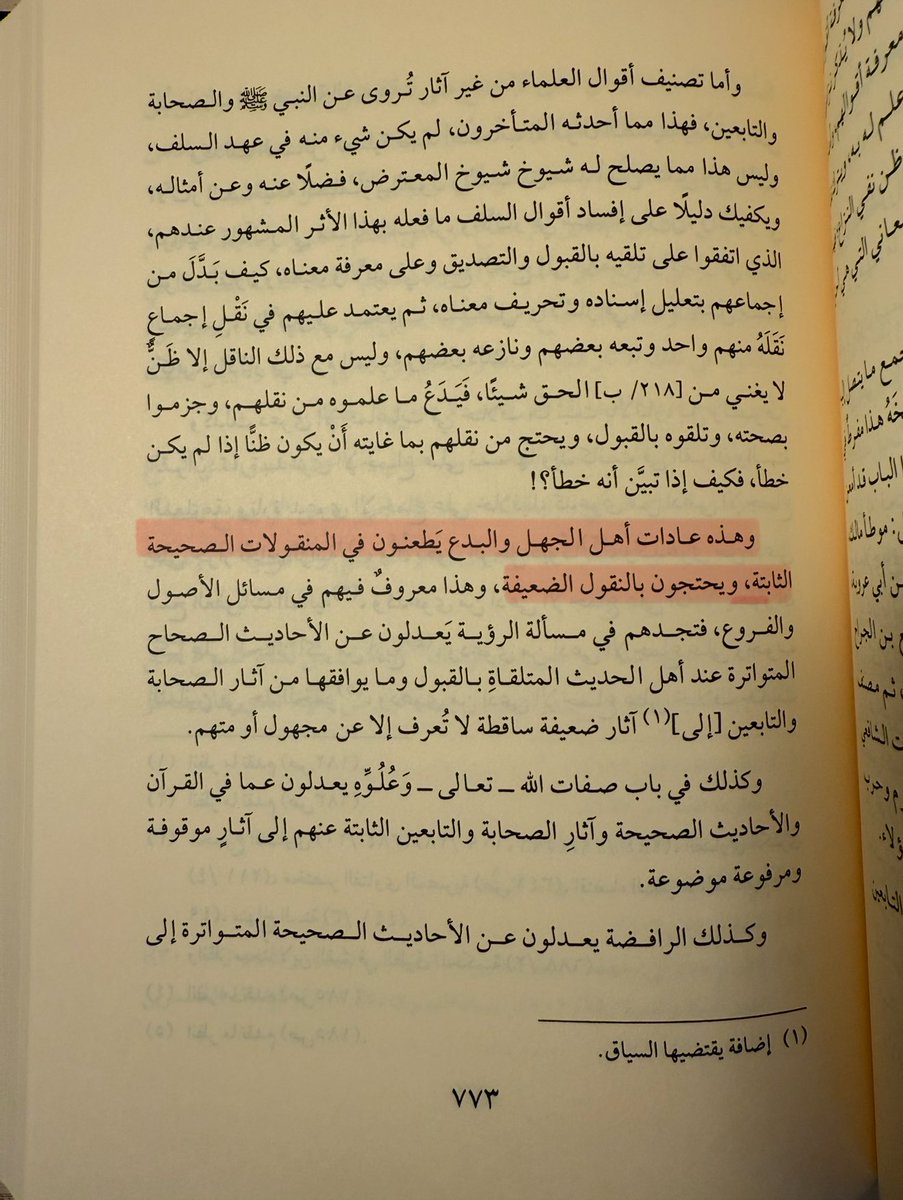 وأما تصنيف أقوال العلماء من غير آثار تُروى عن النبي ﷺ والصحابة
والتابعين، فهذا مما أحدثه المتأخرون، لم يكن شيء منه في عهد السلف،
وليس هذا مما يصلح له شيوخ شيوخ المعترض، فضلًا عنه وعن أمثاله،
ويكفيك دليلًا على إفساد أقوال السلف ما فعله بهذا الأثر المشهور عندهم،
الذي اتفقوا على تلقيه بالقبول والتصديق وعلى معرفة معناه، كيف بَدَّلَ من
إجماعهم بتعليل إسناده وتحريف معناه، ثم يعتمد عليهم في نَقْلِ إجماعٍ
نَقَلَهُ منهم واحد وتبعه بعضهم ونازعه بعضهم، وليس مع ذلك الناقل إلا ظَنٌّ
لا يغني من [٢١٨/ ب] الحق شيئًا، فَيَدَعُ ما علموه من نقلهم، وجزموا
بصحته، وتلقوه بالقبول، ويحتج من نقلهم بما غايته أَنْ يكون ظنًّا إذا لم يكن
خطأ، فكيف إذا تبيَّن أنه خطأ؟!
وهذه عادات أهل الجهل والبدع يَطعنون في المنقولات الصحيحة
الثابتة، ويحتجون بالنقول الضعيفة، وهذا معروفٌ فيهم في مسائل الأصول
والفروع، فتجدهم في مسألة الرؤية يَعدلون عن الأحاديث الصحاح
المتواترة عند أهل الحديث المتلقاةِ بالقبول وما يوافقها من آثار الصحابة
والتابعين [إلى](١) آثار ضعيفة ساقطة لا تُعرف إلا عن مجهول أو متهم.
وكذلك في باب صفات الله ــ تعالى ــ وَعُلُوِّهِ يعدلون عما في القرآن
والأحاديث الصحيحة وآثارِ الصحابة والتابعين الثابتة عنهم إلى آثارٍ موقوفة
ومرفوعة موضوعة.
وكذلك الرافضة يعدلون عن الأحاديث الصحيحة المتواترة إلى
(١) إضافة يقتضيها السياق.
٧٧٣